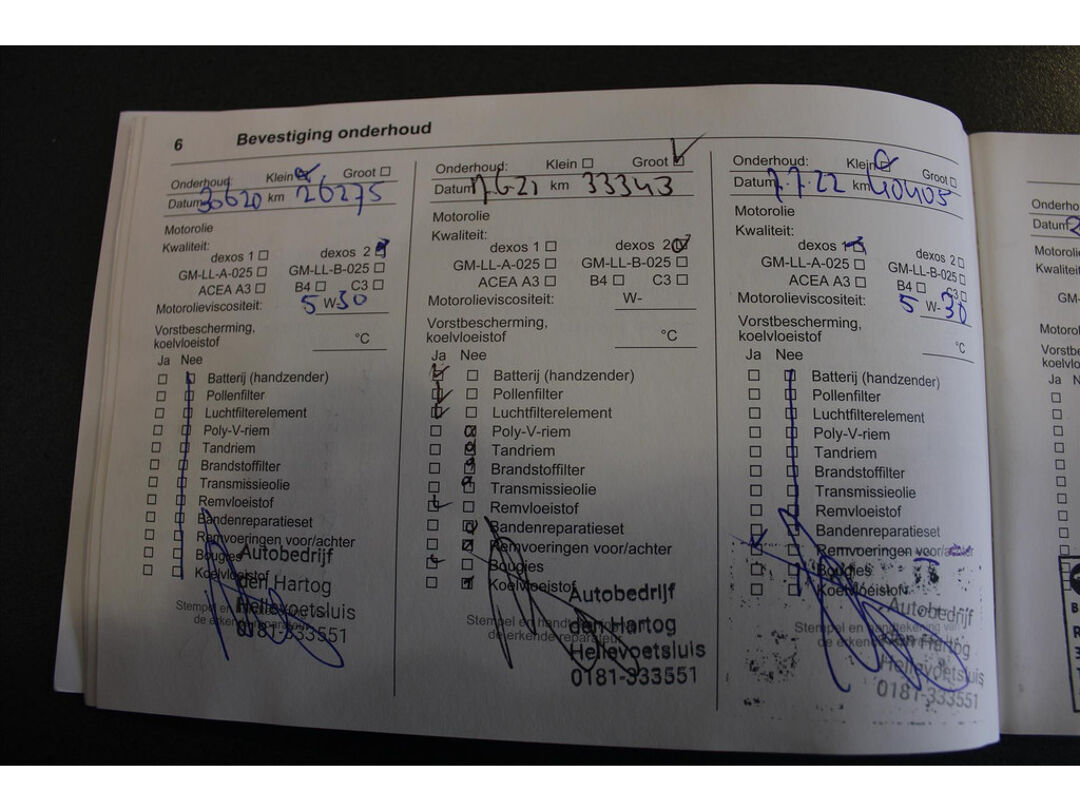 6 Bevestiging onderhoud
Onderhoud: Klein Groot
Datum 30620 km 26275
Motorolie
Kwaliteit:
dexos 1 dexos 2
GM-LL-A-025 GM-LL-B-025
ACEA A3 B4 C3
Motorolieviscositeit: 5 W-30
Vorstbescherming,
koelvloeistof °C
Ja Nee
Batterij (handzender)
Pollenfilter
Luchtfilterelement
Poly-V-riem
Tandriem
Brandstoffilter
Transmissieolie
Remvloeistof
Bandenreparatieset
Remvoeringen voor/achter
Bougies
Koelvloeistof
Stempel en
de erkende reparateur
Autobedrijf
den Hartog
Hellevoetsluis
0181-333551
Onderhoud: Klein Groot
Datum 17.6.21 km 33343
Motorolie
Kwaliteit:
dexos 1 dexos 2
GM-LL-A-025 GM-LL-B-025
ACEA A3 B4 C3
Motorolieviscositeit: W-
Vorstbescherming,
koelvloeistof °C
Ja Nee
Batterij (handzender)
Pollenfilter
Luchtfilterelement
Poly-V-riem
Tandriem
Brandstoffilter
Transmissieolie
Remvloeistof
Bandenreparatieset
Remvoeringen voor/achter
Bougies
Koelvloeistof
Stempel en
de erkende reparateur
Autobedrijf
den Hartog
Hellevoetsluis
0181-333551
Onderhoud: Klein Groot
Datum 7.7.22 km 40405
Motorolie
Kwaliteit:
dexos 1 dexos 2
GM-LL-A-025 GM-LL-B-025
ACEA A3 B4 C3
Motorolieviscositeit: 5 W-30
Vorstbescherming,
koelvloeistof °C
Ja Nee
Batterij (handzender)
Pollenfilter
Luchtfilterelement
Poly-V-riem
Tandriem
Brandstoffilter
Transmissieolie
Remvloeistof
Bandenreparatieset
Remvoeringen voor/achter
Bougies
Koelvloeistof
Stempel en handtekening van
de erkende
Autobedrijf
den Hartog
Hellevoetsluis
0181-333551
Onderho
Datum
Motorol
Kwaliteit
GM-
Motorol
Vorstbe
koelvlo
Ja N